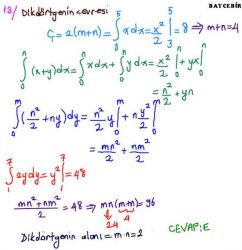 BATCEBİR
13/ Dikdörtgenin çevresi
Ç = 2(m+n) = ∫₃⁵ x dx = x²/2 |₃⁵ = 8 ⇒ m+n=4
∫₀ⁿ (x+y)dx = ∫₀ⁿ x dx + ∫₀ⁿ y dx = x²/2 |₀ⁿ + yx |₀ⁿ
= n²/2 + yn
∫₀ᵐ (n²/2 + ny)dy = n²/2 y |₀ᵐ + n y²/2 |₀ᵐ
= mn²/2 + nm²/2
∫₁⁷ 2y dy = y² |₁⁷ = 48
mn²+nm²/2 = 48 ⇒ mn(m+n) = 96
24 4
Dikdörtgenin alanı = m·n = 2
CEVAP: E